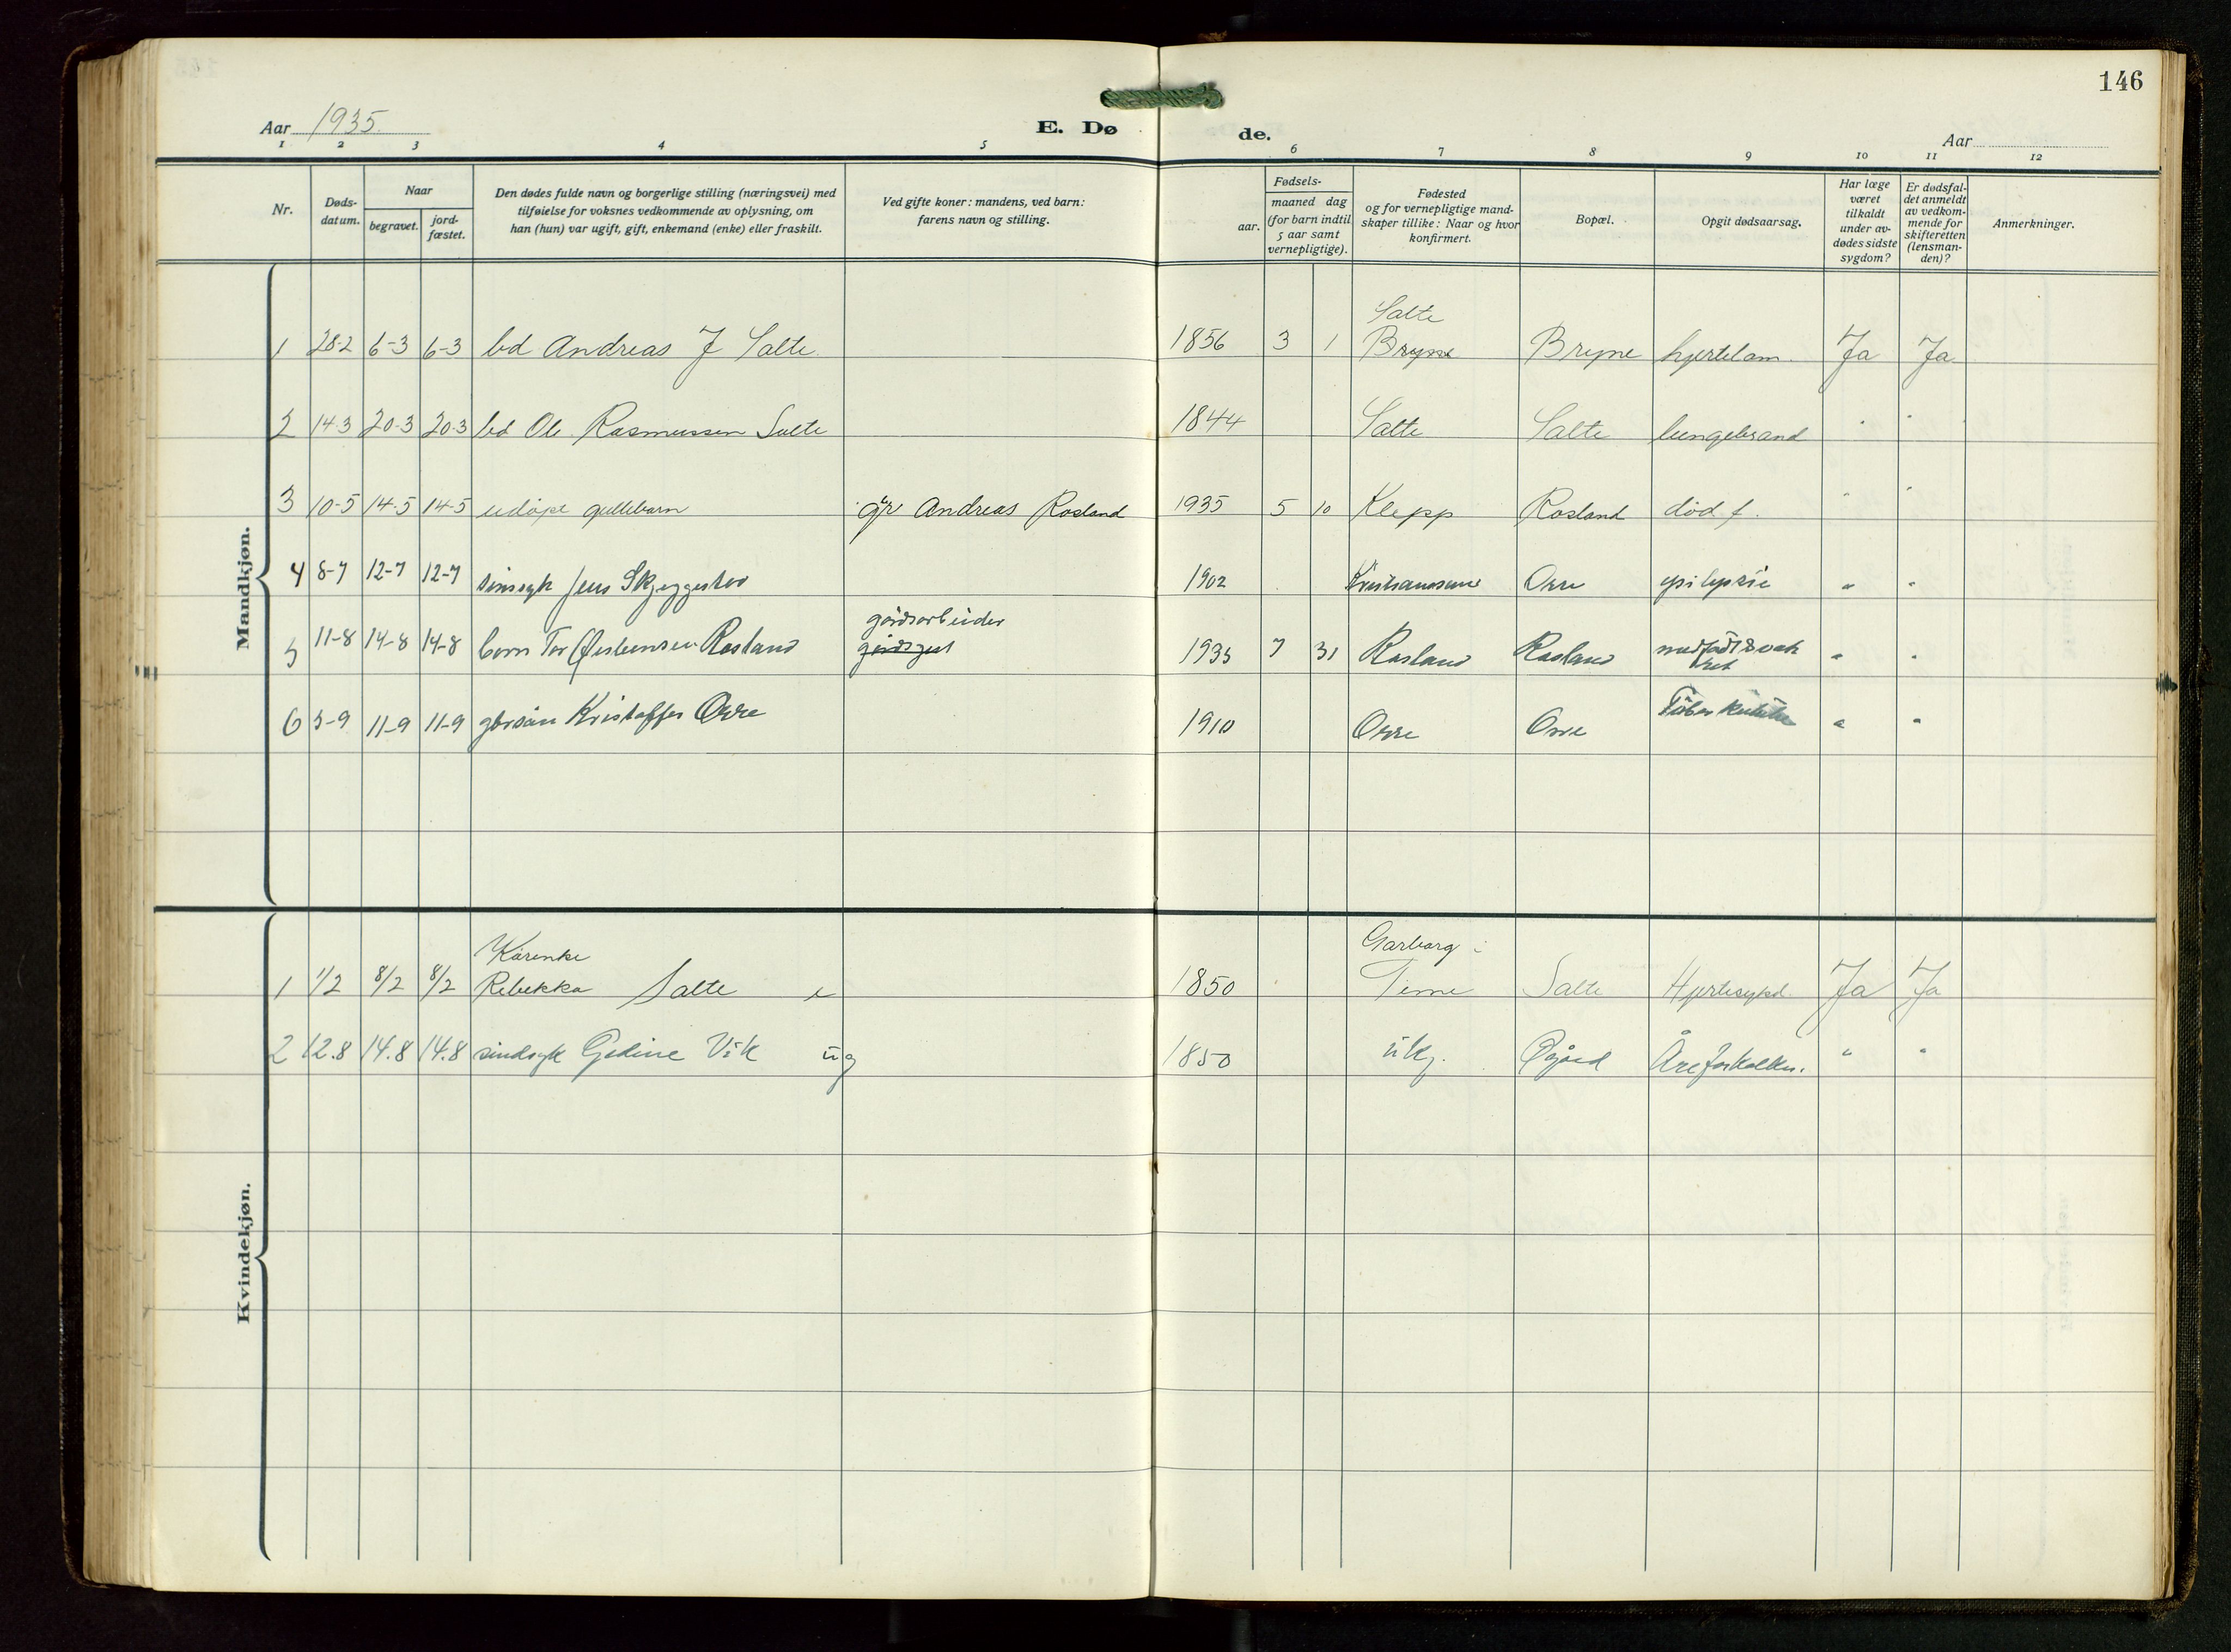 146
Aar 1935.
E. Dø
de.
Aar
1 2 3 4 5 6 7 8 9 10 11 12
Nr.
Døds-
datum.
Naar
begravet.
jord-
fæstet.
Den dødes fulde navn og borgerlige stilling (næringsvei) med
tilføielse for voksnes vedkommende av oplysning, om
han (hun) var ugift, gift, enkemand (enke) eller fraskilt.
Ved gifte koner: mandens, ved barn:
farens navn og stilling.
Fødsels-
aar.
maaned dag
(for barn indtil
5 aar samt
vernepligtige).
Fødested
og for vernepligtige mand-
skaper tillike: Naar og hvor
konfirmert.
Bopæl.
Opgit dødsaarsag.
Har læge
været
tilkaldt
under av-
dødes sidste
sygdom?
Er dødsfal-
det anmeldt
av vedkom-
mende for
skifteretten
(lensman-
den)?
Anmerkninger.
Mandkjøn.
Salte
1 28-2 6-3 6-3 Andreas J Salte 1856 3 1 Bryne Bryne hjertelam. Ja Ja
2 14-3 20-3 20-3 Ole Rasmussen Salte 1844 Salte Salte lungebrand " "
3 10-5 14-5 14-5 udøpt guttebarn Andreas Rosland 1935 5 10 Klepp Rosland død f. " "
4 8-7 12-7 12-7 sinssyk Jens Skjeggestad 1902 Kristiansund Orre epilepsie " "
gårdsarbeider
5 11-8 14-8 14-8 barn Tor Øisteinsen Rosland 1935 7 31 Rosland Rosland medfødt svak
het " "
6 5-9 11-9 11-9 Kristoffer Orre 1910 Orre Orre " "
Kvindekjøn.
Karenke Garborg i
1 1/2 8/2 8/2 Rebekka Salte e 1850 Time Salte Hjertesykd. Ja Ja
2 12.8 14.8 14.8 sindsyk Gedine Vik ug 1850 ukj. Øgård Åreforkalkn. " "